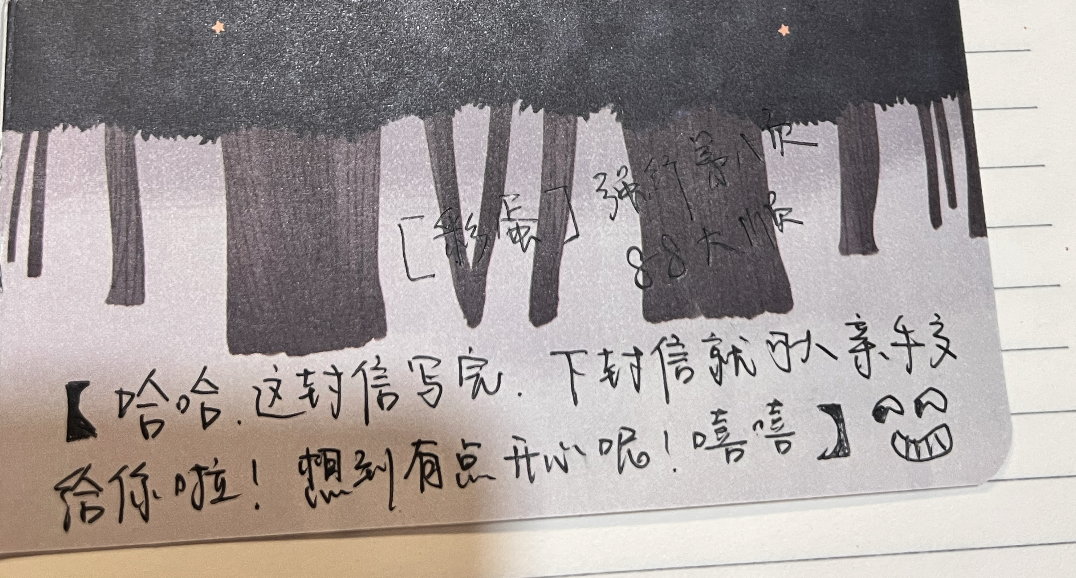 [彩蛋] 强行普八页
88大顺
【哈哈.这封信写完.下封信就可以亲手交
给你啦！想到有点开心呢！嘻嘻】